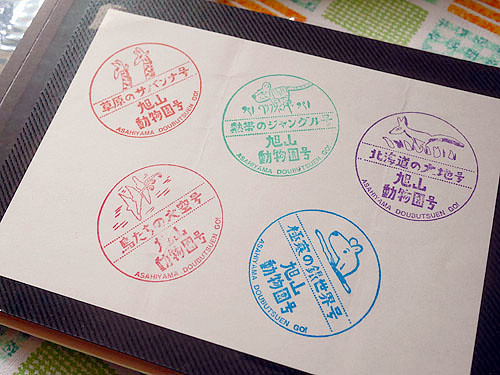 草原のサバンナ号
旭山
動物園号
ASAHIYAMA DOUBUTSUEN GO!
熱帯のジャングル号
旭山
動物園号
ASAHIYAMA DOUBUTSUEN GO!
北海道の大地号
旭山
動物園号
ASAHIYAMA DOUBUTSUEN GO!
鳥たちの大空号
旭山
動物園号
ASAHIYAMA DOUBUTSUEN GO!
極寒の銀世界号
旭山
動物園号
ASAHIYAMA DOUBUTSUEN GO!